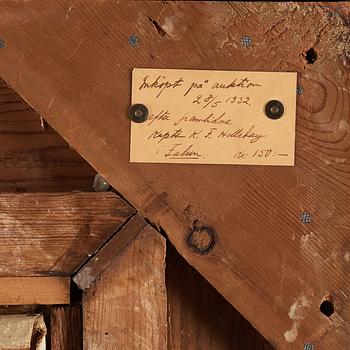 Inköpt på auktion
28/5 1932
efter framlidne
Kapten K. F. Hellebay
Falun. Kr: 150:-